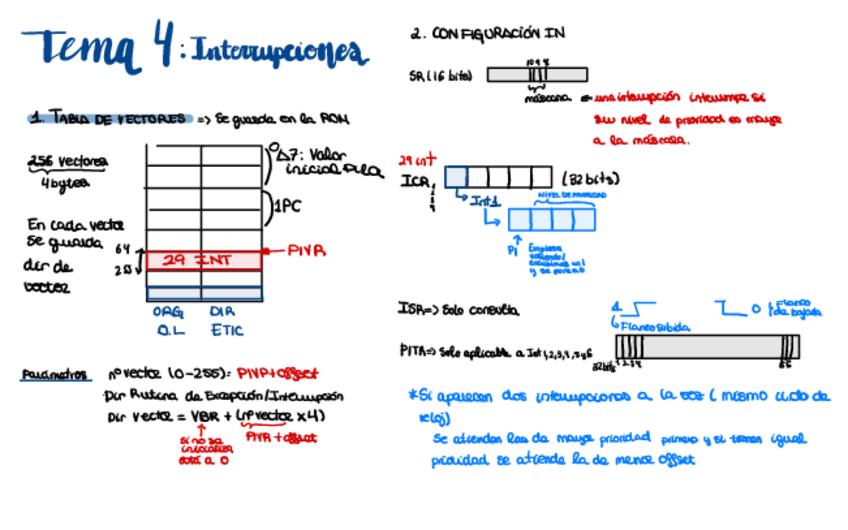 Tema 4: Interrupciones
1. TABLA DE VECTORES => Se guarda en la ROM
256 vectores
4 bytes
En cada vector
se guarda
dir de
vector
0 A7: Valor
inicial Pila
1 PC
64
255
29 INT
PIVR
ORG DIR
O.L ETIC
Parámetros
nº vector (0-255): PIVR+offset
Dir Rutina de Excepción/Interrupción
Dir Vector = VBR + (nº vector x4)
si no se
inicializa
está a 0
PIVR + offset
2. CONFIGURACIÓN IN
SR (16 bits)
10 9 8
máscara = una interrupción interrumpe si
su nivel de prioridad es mayor
a la máscara.
29 int
ICR
(32 bits)
Int1
NIVEL DE PRIORIDAD
PI
Empieza
y se pone a 0
ISR=> Solo consulta
1
Flanco subida
0
Flanco
de bajada
PITR=> Solo aplicable a Int 1,2,3,4,5 y 6
32 bits
1 2 3 4
5 6
*Si aparecen dos interrupciones a la vez ( mismo ciclo de
reloj)
Se atienden las de mayor prioridad primero y si tienen igual
prioridad se atiende la de menor offset